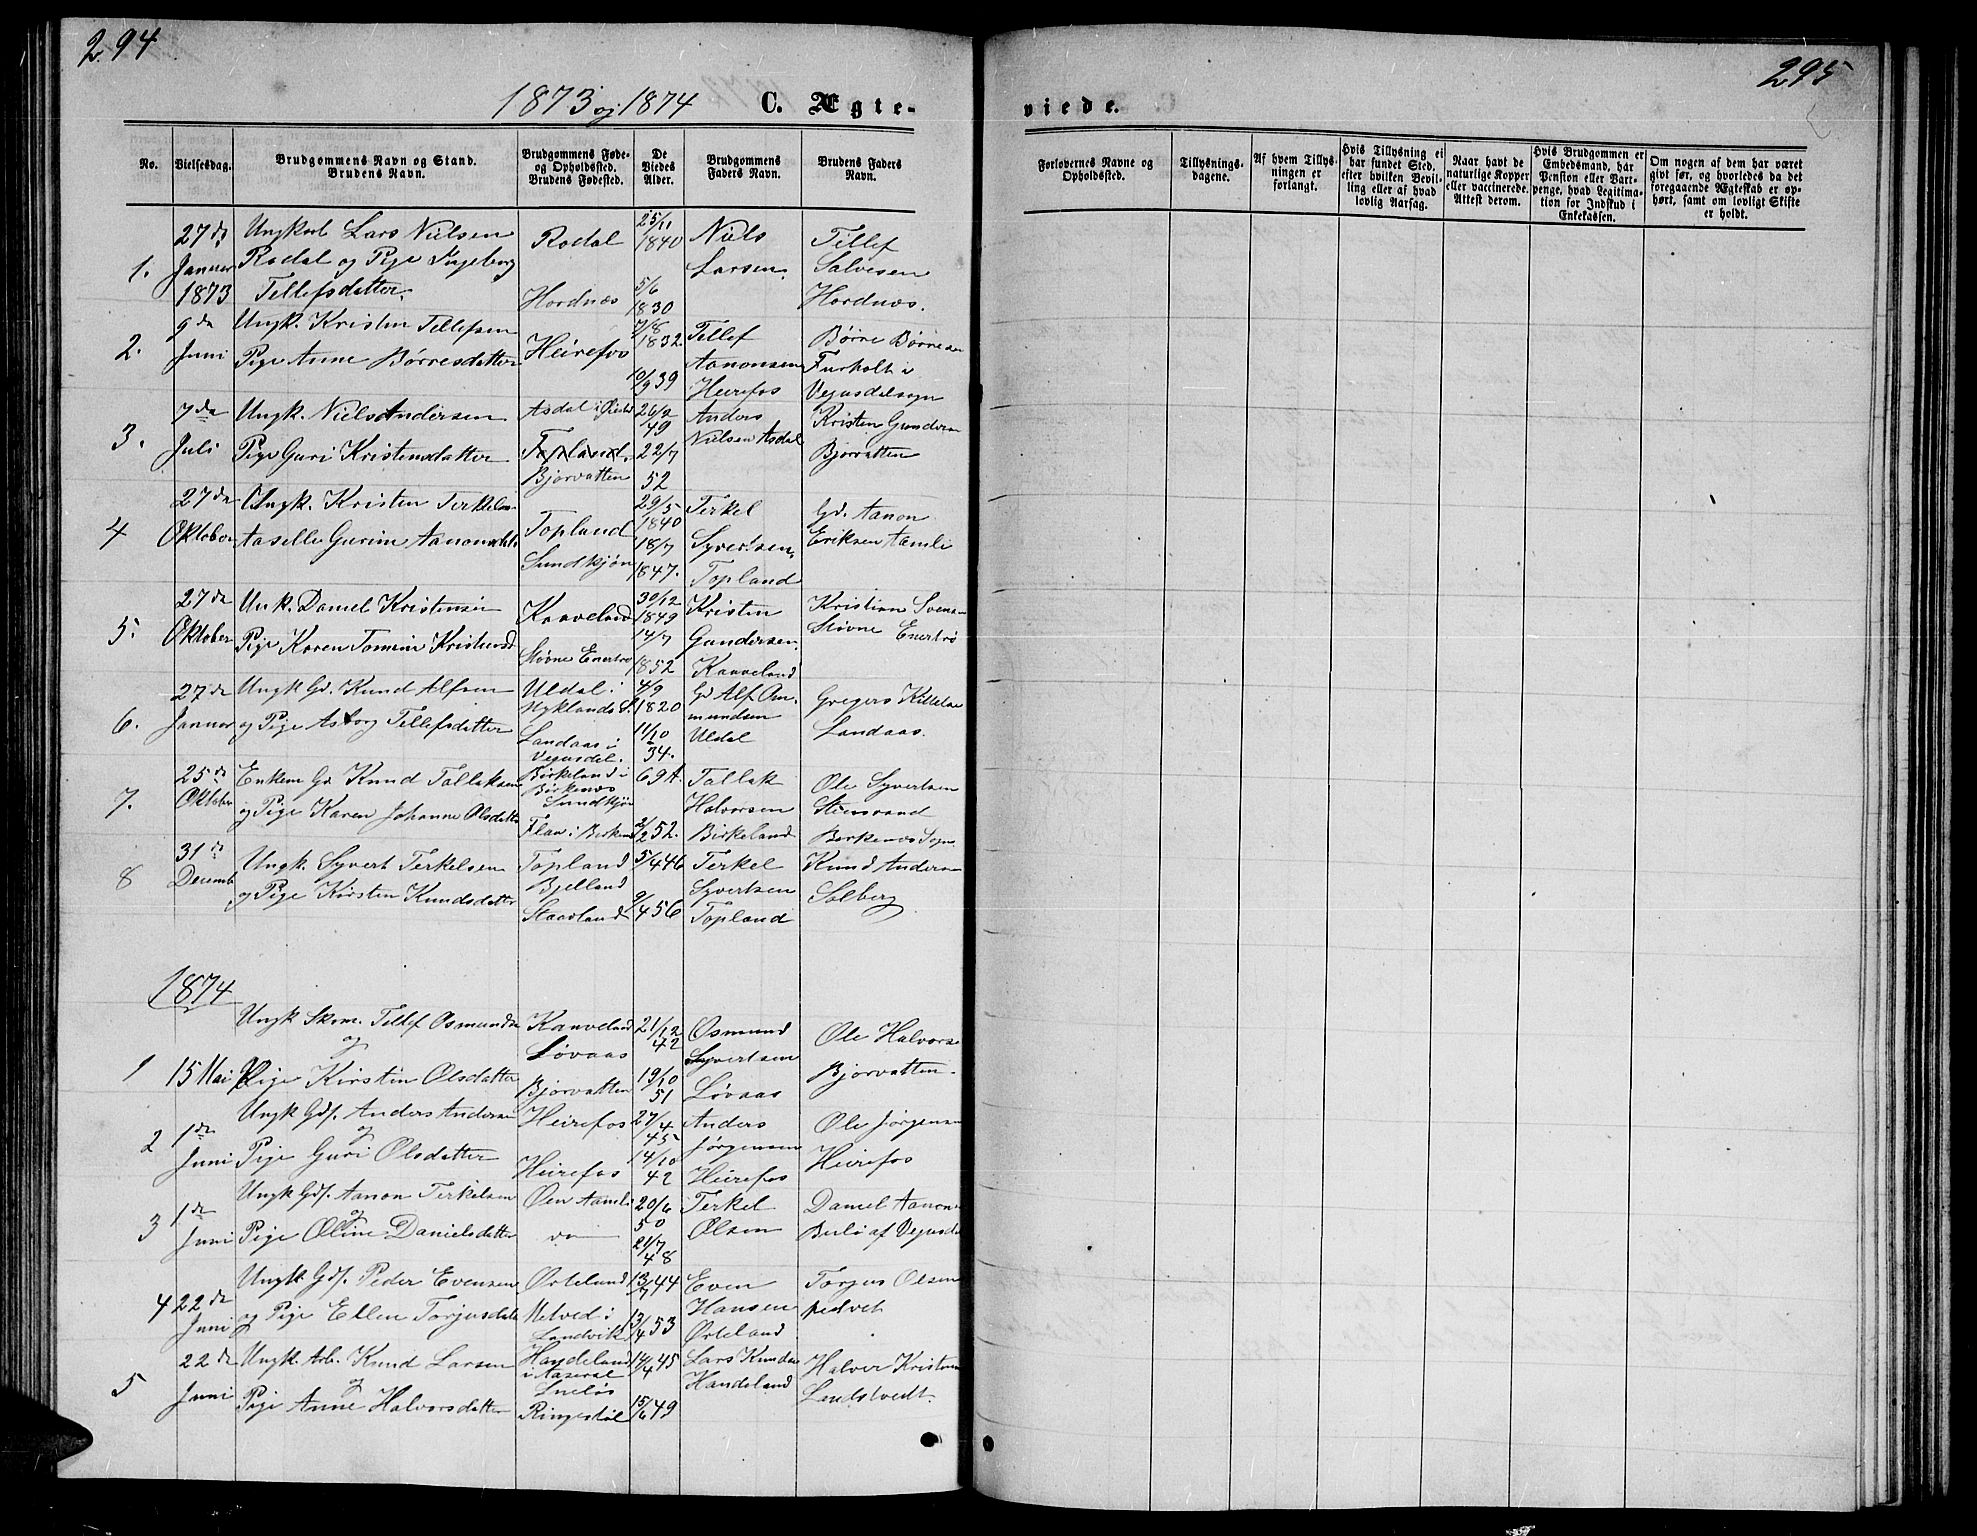 294
1873 og 1874 C. Ægte-
No. Vielsesdag. Brudgommens Navn og Stand. Brudens Navn. Brudgommens Føde- og Opholdssted. Brudens Fødested. De Viedes Alder. Brudgommens Faders Navn. Brudens Faders Navn.
27de Ungkarl Lars Nielsen Rodal 25/11 1840 Niels Tellef
1. Januar Rodal og Pige Ingeborg Larsen. Salvesen
1873 Tellefsdatter. Hordnæs 5/6 1830 Hordnæs.
9de Ungk. Kristen Tellefsen 7/8 1832. Tellef Børre Børresen
2. Juni Pige Anne Børresdatter Heirefos Aanonsen Furholt i
10/9 39 Heirefos Vegusdal sogn
7de Ungk. Niels Andersen Asdal i Øiestad 26/2 49 Anders Kristen Gundersen
3. Juli Pige Guri Kristensdatter Topland. 22/7 Nielsen Asdal Bjorvatten
Bjorvatten 52
27de Ungk. Kristen Terkelsen 29/5 1840 Terkel Gd. Aanon
4 Oktober Aaselle Gurine Aanonsdtr. Topland 18/7 Syvertsen. Eriksen Aamli
Sundkjøn 1847. Topland
27de Unk. Daniel Kristensen Kaaveland 30/12 1849 Kristen Kristian Svensen
5. Oktober Pige Karen Tomine Kristensd 14/7 Gundersen. Støvne Enertrø
Støvne Enertrø 1852 Kaaveland
27de Ungk Gd. Knud Alfsen Uldal i 4/9 Gd Alf Om- Gregers Kittelsen
6. Januar og Pige Astorg Tellefsdatter Hyklands S. 1820 mundsen Landaas.
Landaas i Vegusdal. 11/10 34. Uldal
25de Enkem Gd Knud Tallaksen Birkeland i Birkenes 69 A Tallak Ole Syvertsen
7. Oktober og Pige Karen Johanne Olsdatter Sundkjøn Halvorsen Steinsvand
Flaa i Birkenes 2/2 52. Birkeland Berkenes Sogn.
31de Ungk. Syvert Terkelsen Topland 5/4 46 Terkel Knud Andersen
8 Decemb og Pige Kirsten Knudsdatter Bjelland Syvertsen Solberg
Staaland 9/4 56 Topland
1874
Ungk Skom. Tellef Osmundsen Kaaveland 21/12 42 Osmund Ole Halvorsen
og Løvaas Syvertsen
1 15 Mai Pige Kirstin Olsdatter Bjorvatten 19/10 51 Løvaas Bjorvatten.
Ungk Gdf. Anders Andersen Heirefos 27/4 45 Anders Ole Jørgensen
2 1de og Jørgensen
Juni Pige Guri Olsdatter Heirefos 14/10 42 Heirefos Heirefos
Ungk Gdf. Aanon Terkelsen Øen Aamli 20/6 50 Terkel Daniel Aanons
3 1de og
Juni Pige Oline Danielsdatter do 21/7 48 Olsen Berlø af Vegusdal
Ungk. Gdf. Peder Evensen Ørteland 13/7 44 Even Torjus Olsen
4 22de og Pige Ellen Torjusdatter Melved i 13/4 53 Hansen
Juni Landvik Ørteland
22de Ungk. Arb. Knud Larsen Handeland 14/4 45 Lars Knudsen Halvor Kristensen
5 og i Aaseral Handeland Landstvedt.
Juni Pige Anne Halvorsdatter Ringestøl 15/6 49
295
viede.
Forlovernes Navne og Opholdssted. Tillysnings-dagene. Af hvem Tillys-ningen er forlangt. Hvis Tillysning ei har fundet Sted, efter hvilken Bevil-ling eller af hvad lovlig Aarsag. Naar havt de naturlige Kopper eller vaccinerede. Attest derom. Hvis Brudgommen er Embedsmand, har Pension eller Vart-penge, hvad Legitima-tion for Indskud i Enkekassen. Om nogen af dem har været gift før, og hvorledes da det foregaaende Ægteskab er op-hørt, samt om lovligt Skifte er holdt.